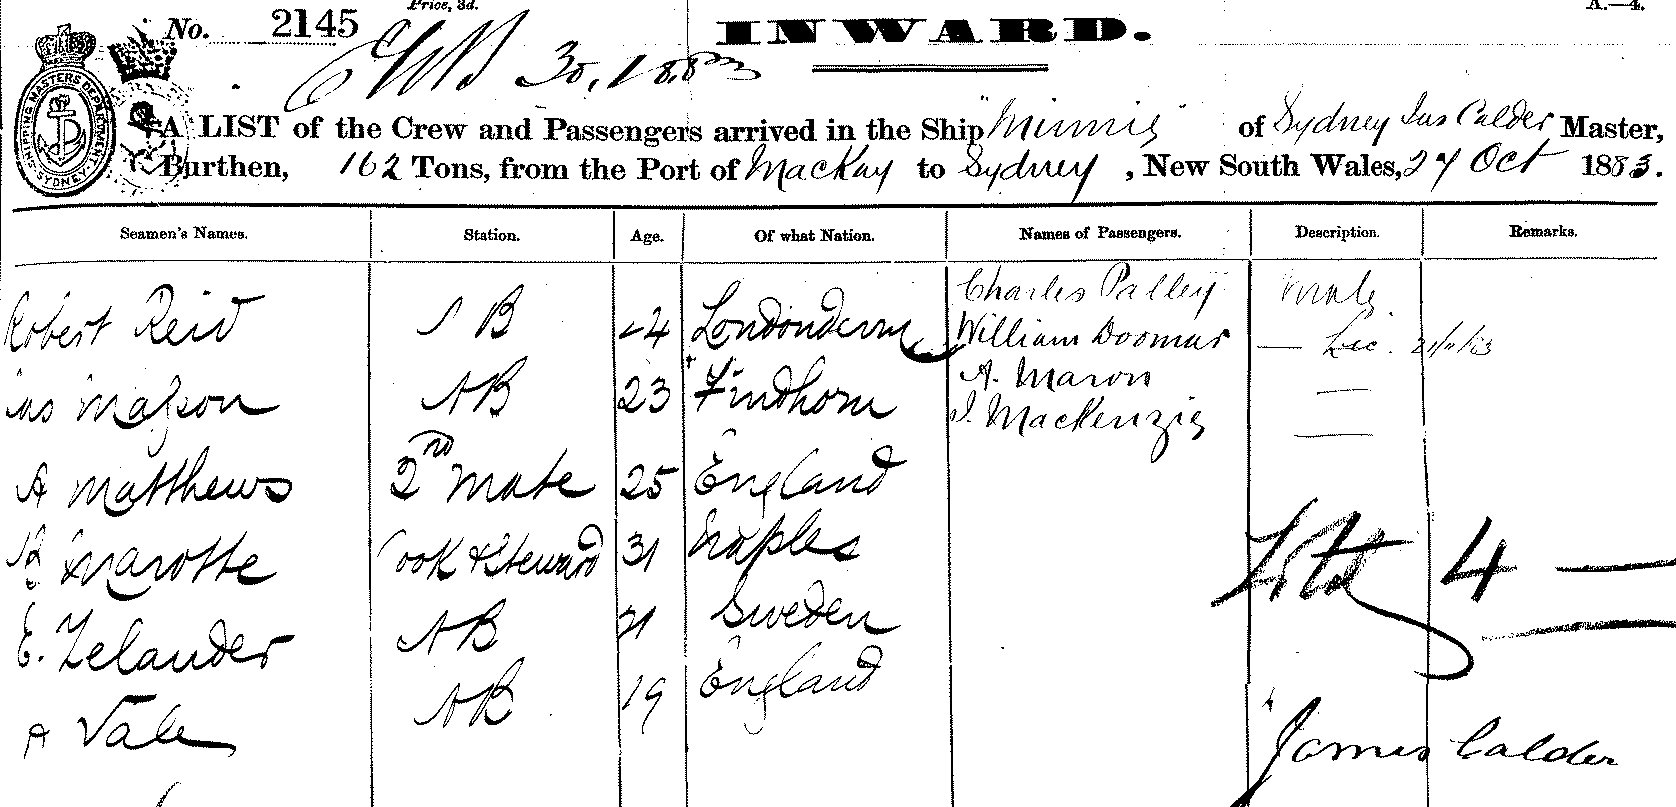 Price, 3d.
A.—4.
No. 2145
INWARD.
30, 1883
SHIPPING MASTERS DEPARTMENT SYDNEY
A LIST of the Crew and Passengers arrived in the Ship "Minnie" of Sydney Jas Calder Master,
Burthen, 162 Tons, from the Port of MacKay to Sydney, New South Wales, 27 Oct 1883.
Seamen's Names. Station. Age. Of what Nation. Names of Passengers. Description. Remarks.
Robert Reid A B 24 Londonderry
Jas Masson A B 23 Findhorn
A Matthews 2nd Mate 25 England
Marotte Cook & Steward 31 Naples
E. Zelander A B 21 Sweden
A Vale A B 19 England
Charles Palley Mate
William Doomar —
A. Maron —
J. MacKenzie —
Total 4 —
James Calder